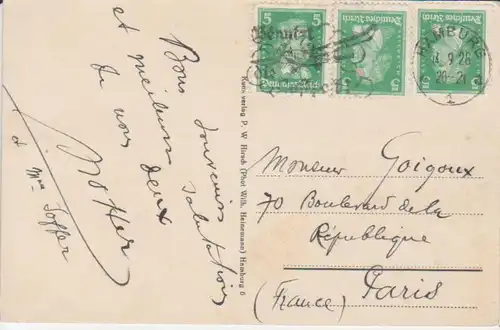 Bons souvenirs
et meilleures salutations
de vous deux
& Mme Soffer
Kunstverlag P. W. Hirsch (Phot Wilh. Heinemann) Hamburg 6
5
Deutsches Reich
Deutsches Reich
Deutsches Reich
Benutzt
HAMBURG
9.28
20-21
1
Monsieur Goigoux
70 Boulevard de la
République
Paris
(France)